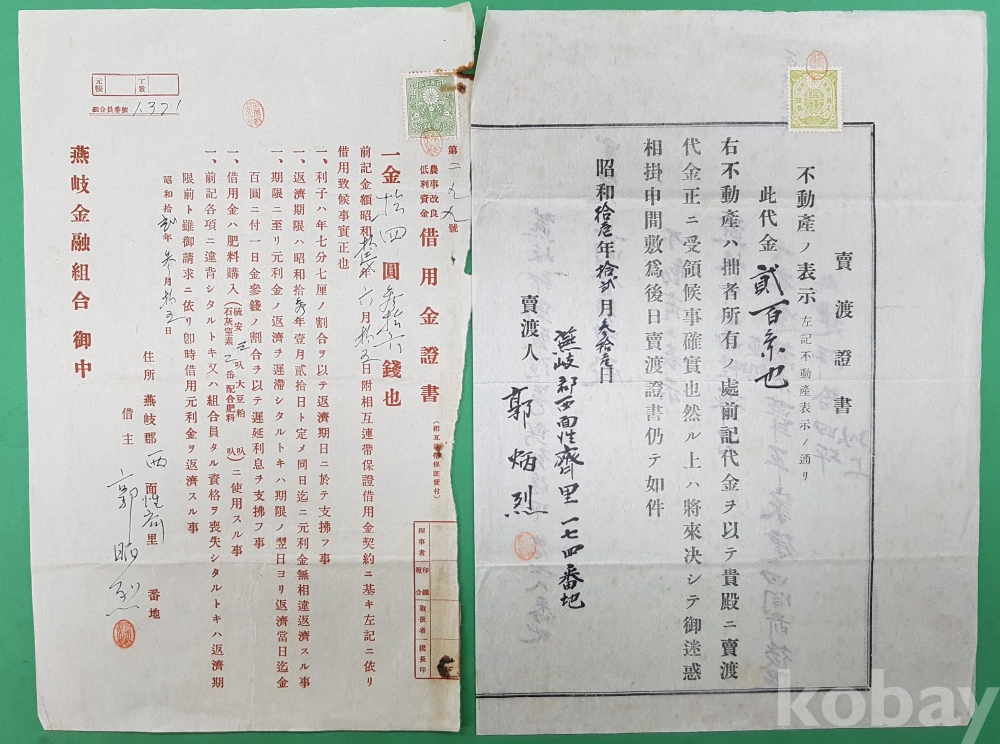 賣渡證書
不動產ノ表示 左記不動產表示ノ通リ
此代金貳百京也
右不動產ハ拙者所有ノ處前記代金ヲ以テ貴殿ニ賣渡
代金正ニ受領候事確實也然ル上ハ將來決シテ御迷惑
相掛申間敷爲後日賣渡證書仍テ如件
昭和拾壱年拾貳月參拾壱日
燕岐郡西面性齊里一七四番地
賣渡人 郭炳烈
元帳 丁數
組合員番號 1371
第二九九號
農事改良低利資金 借用金證書
(相互連帶保証貸付)
一金拾四圓參拾六錢也
前記金額昭和 年六月拾五日附相互連帶保證借用金契約ニ基キ左記ニ依リ
借用致候事實正也
一、利子ハ年七分七厘ノ割合ヲ以テ返濟期日ニ於テ支拂フ事
一、返濟期限ハ昭和拾參年壹月貳拾日ト定メ同日迄ニ元利金無相違返濟スル事
一、期限ニ至リ元利金ノ返濟ヲ遲滯シタルトキハ期限ノ翌日ヨリ返濟當日迄金
百圓ニ付一日金參錢ノ割合ヲ以テ遲延利息ヲ支拂フ事
一、借用金ハ肥料購入(硫安 叺大豆粕 叺 石灰窒素 二 配合肥料 叺)ニ使用スル事
一、前記各項ニ違背シタルトキ又ハ組合員タル資格ヲ喪失シタルトキハ返濟期
限前ト雖御請求ニ依リ卽時借用元利金ヲ返濟スル事
昭和拾貳年參月拾五日
住所 燕岐郡西面性齊里 番地
借主 郭炳烈
燕岐金融組合御中
理事者 印鑑照合 取扱者
kobay